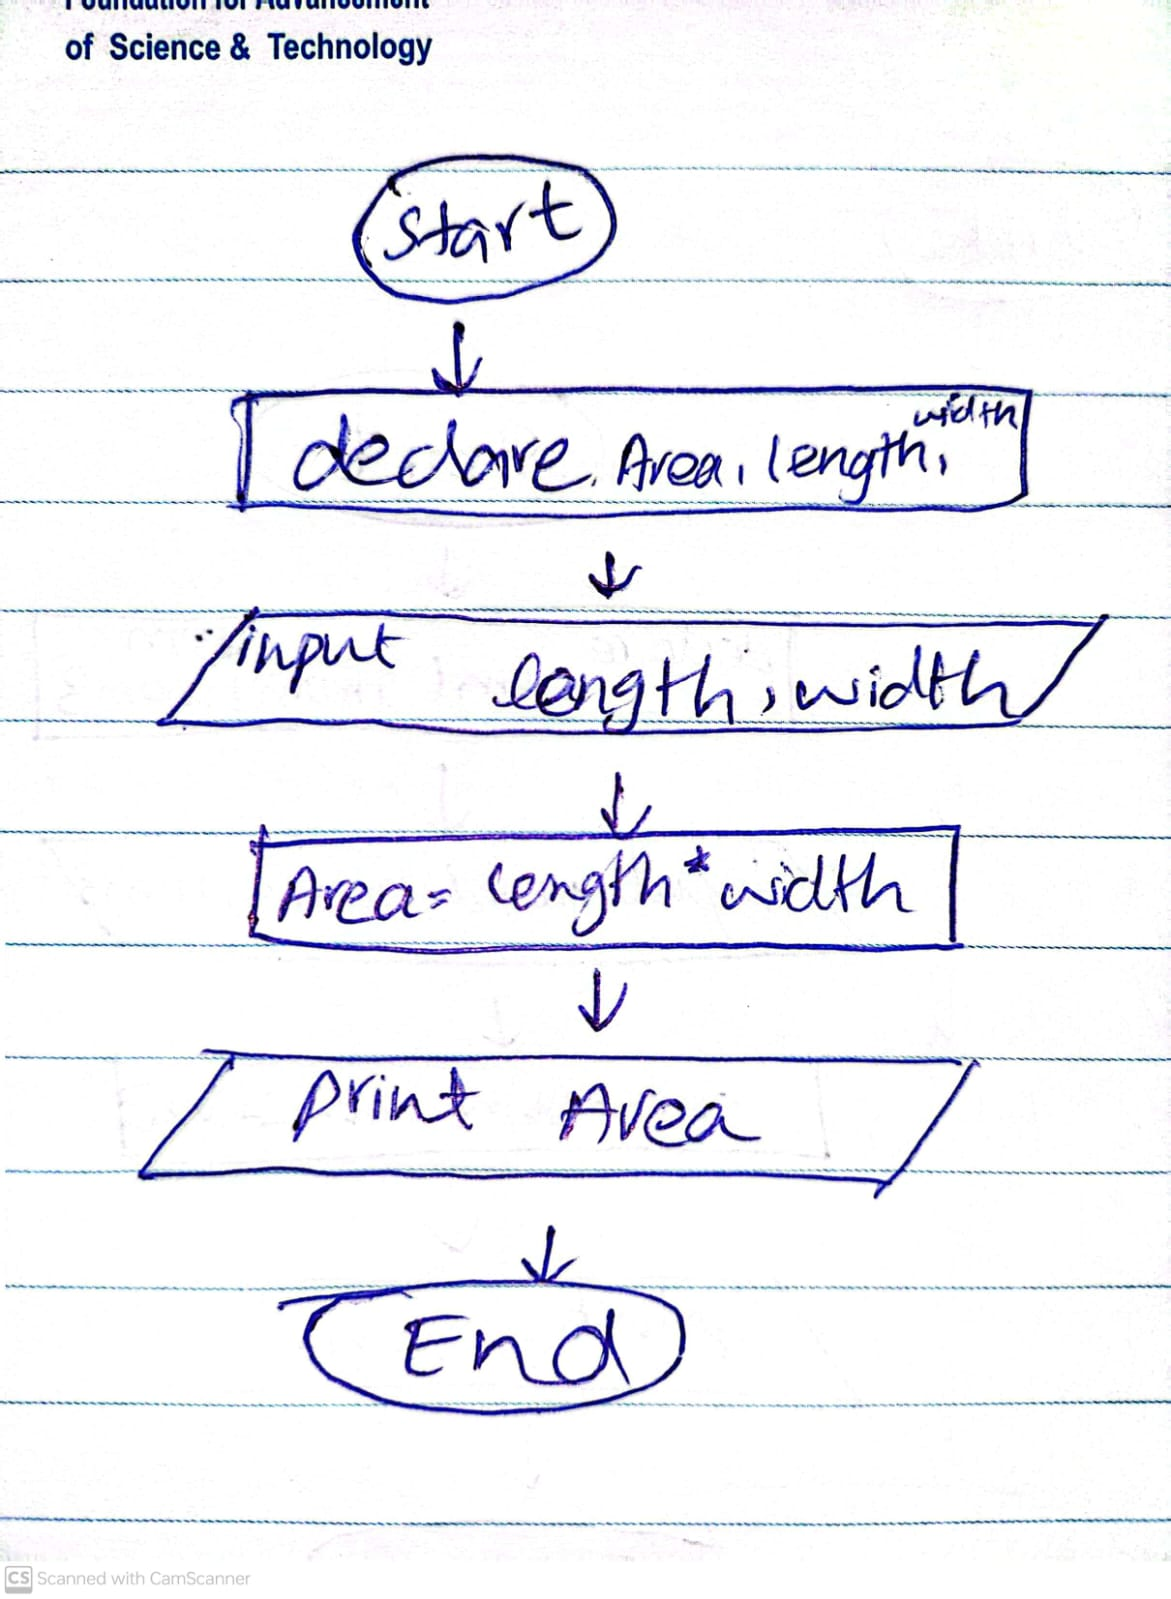 Foundation for Advancement
of Science & Technology
start
declare Area, length, width
input length, width
Area = length * width
print Area
End
CS Scanned with CamScanner